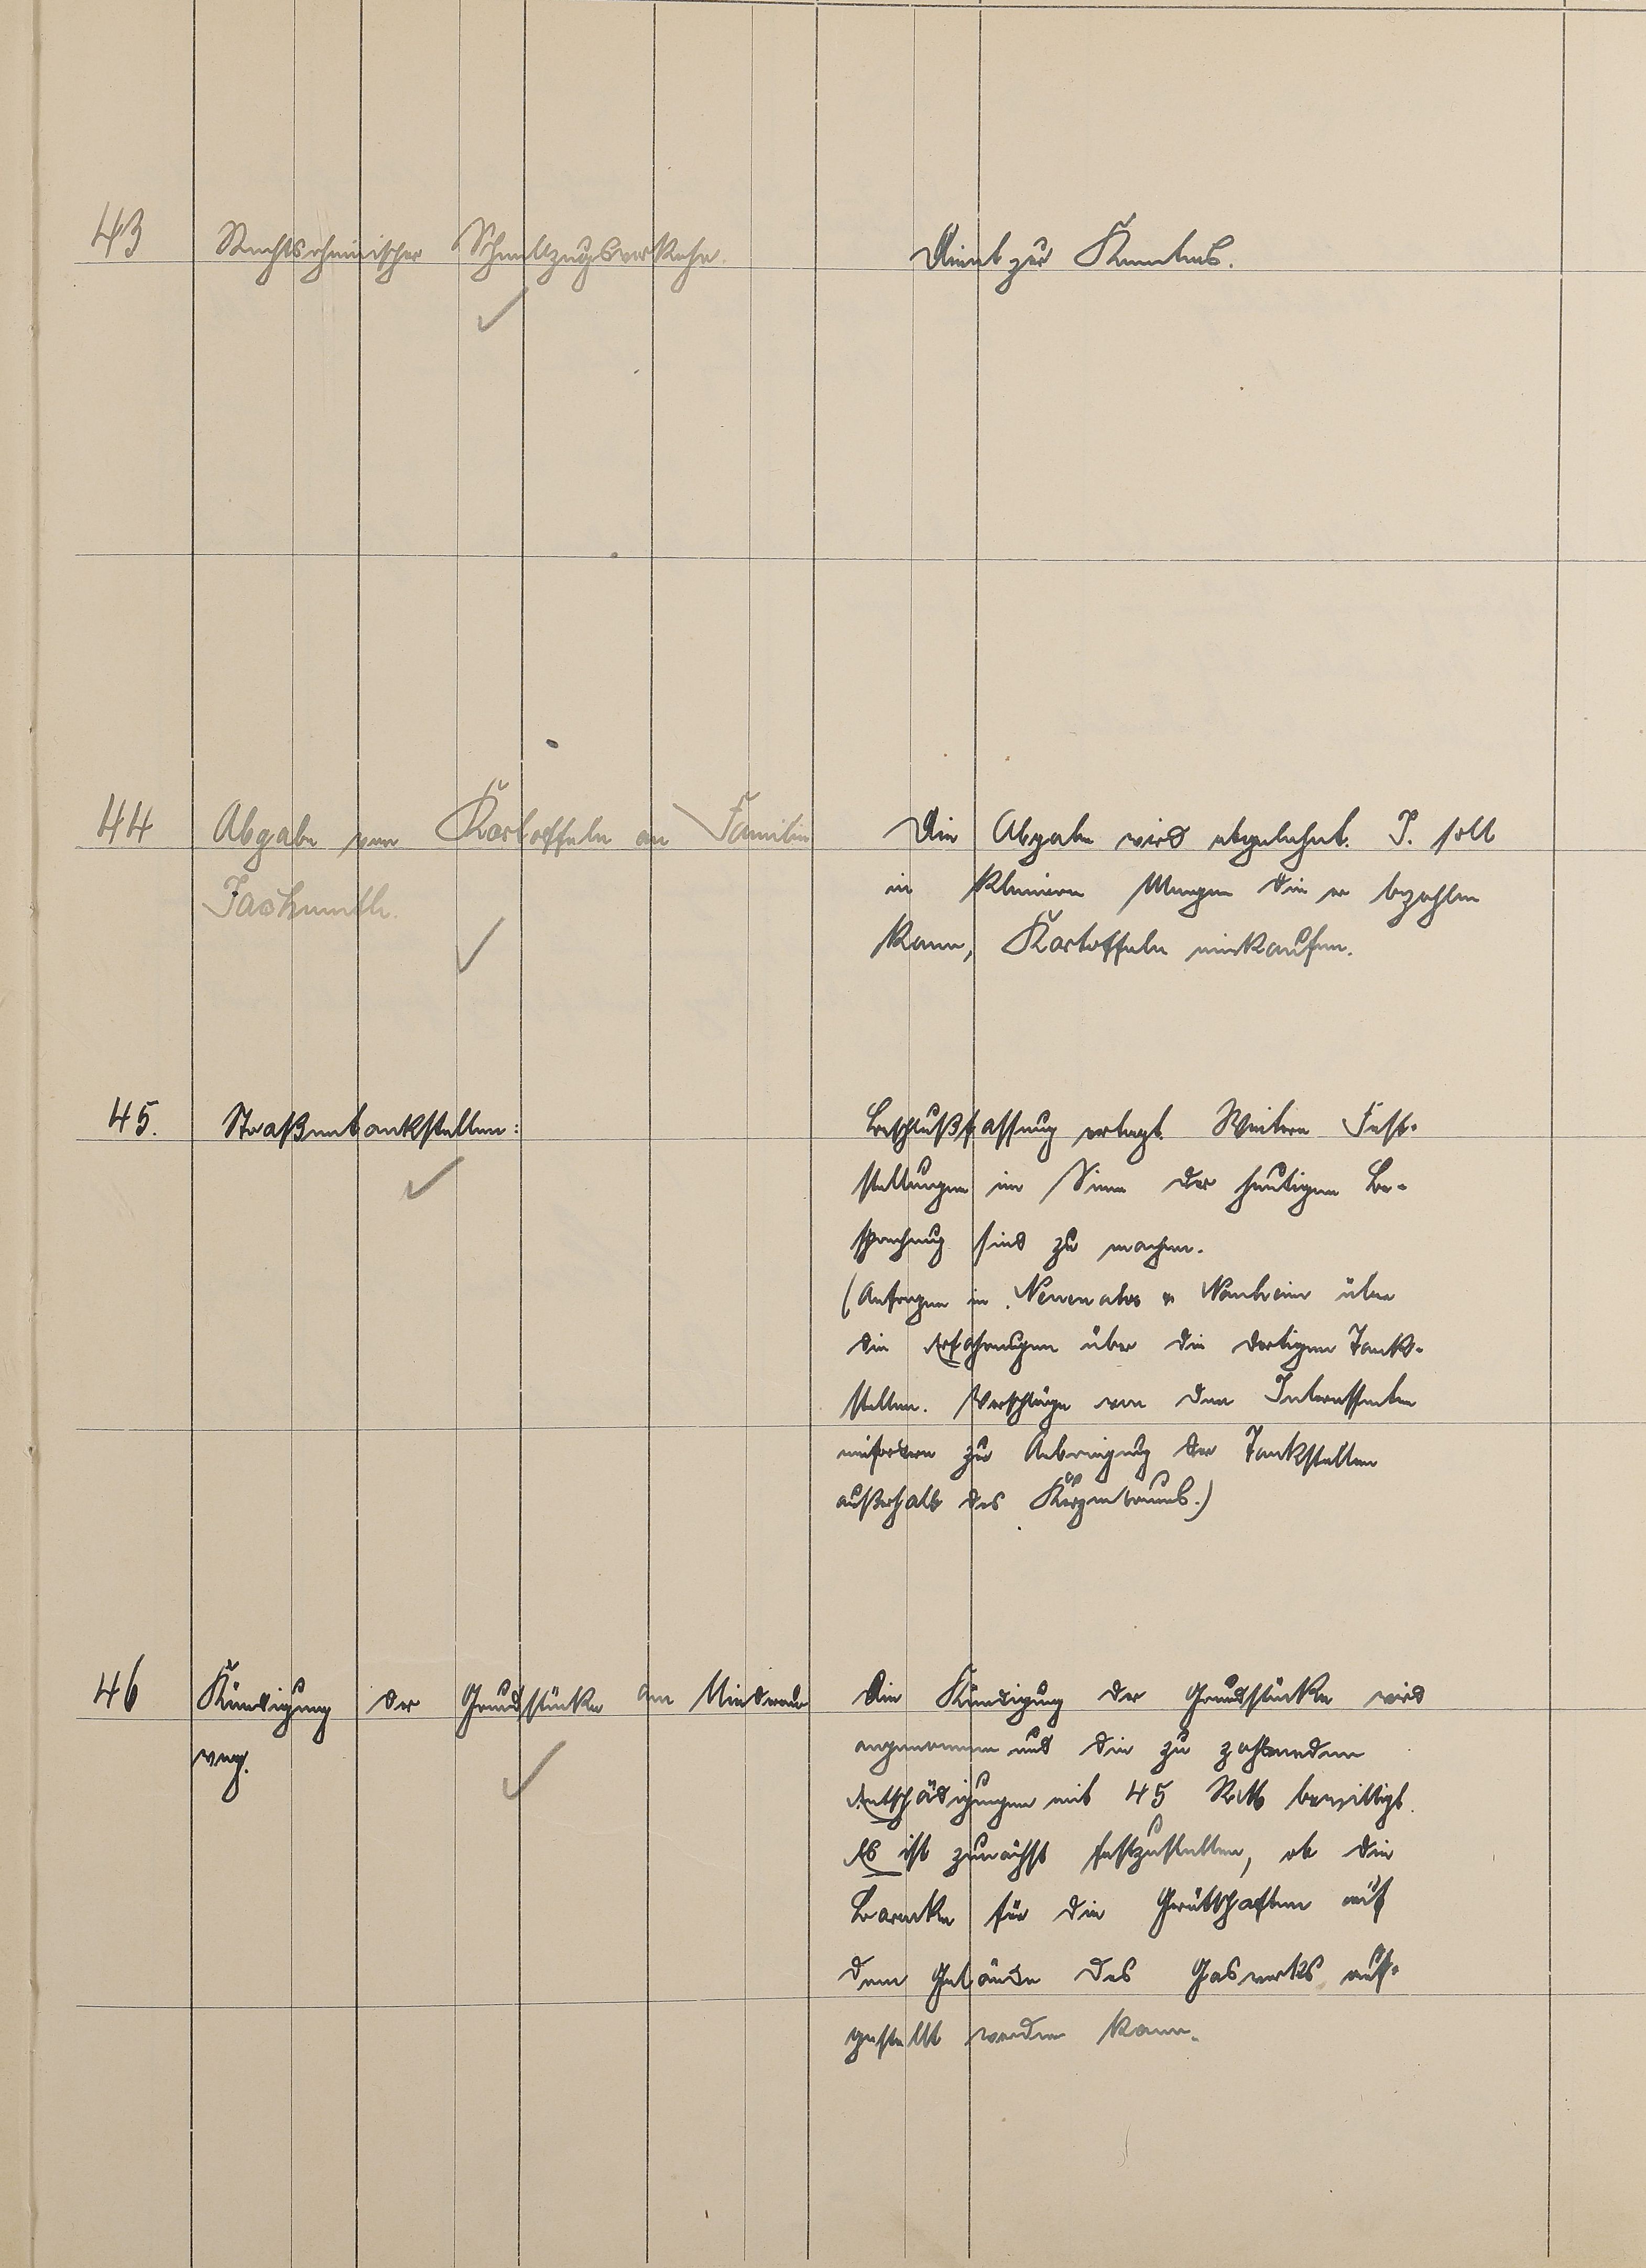 43
Rechtsrheinischer Schnellzugsverkehr.
Dient zur Kenntnis.
44
Abgabe von Kartoffeln an Familie
Die Abgabe wird abgelehnt. J. soll
in kleinern Mengen die er bezahlen
kann, Kartoffeln einkaufen.
45.
Straßentankstellen:
Beschlußfassung vertagt. Weitere Fest-
stellungen im Sinne der heutigen Be-
sprechung sind zu machen.
(Anfragen in Neuenahr u Nauheim über
die Erfahrungen über die dortigen Tank-
stellen. Vorschläge von den Interessenten
einfordern zur Anbringung der Tankstellen
außerhalb des Kurzentrums.)
46
Kündigung der Grundstücke am
weg.
Die Kündigung der Grundstücke wird
angenommen und die zu zahlenden
Entschädigungen mit 45 RM bewilligt.
Es ist zunächst festzustellen, ob die
Baracke für die Gerätschaften auf
dem Gelände des Gaswerks auf-
gestellt werden kann.